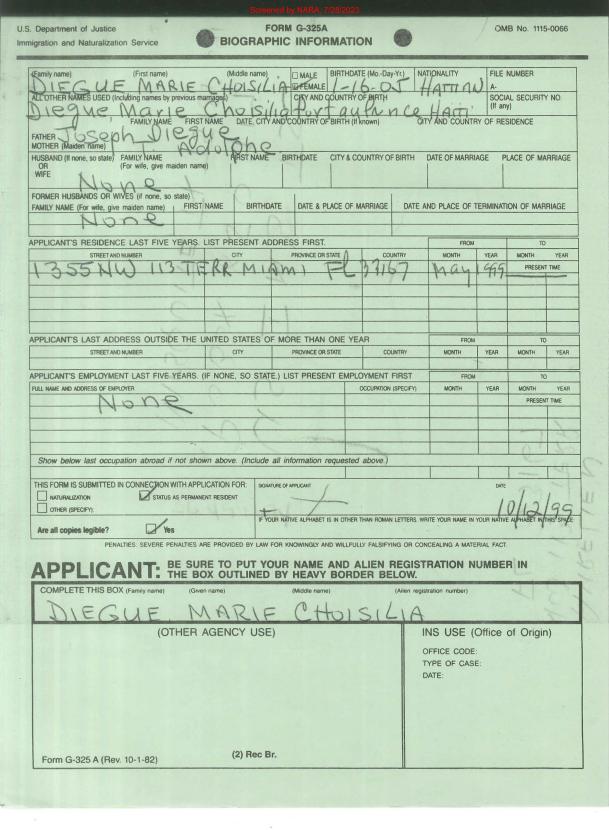 Screened by NARA, 7/28/2023
U.S. Department of Justice
Immigration and Naturalization Service
FORM G-325A
BIOGRAPHIC INFORMATION
OMB No. 1115-0066
(Family name) (First name) (Middle name) MALE FEMALE BIRTHDATE (Mo.-Day-Yr.) NATIONALITY FILE NUMBER
DIEGUE MARIE CHOISILIA 1-16-05 HAITIAN A-
ALL OTHER NAMES USED (Including names by previous marriages) CITY AND COUNTRY OF BIRTH SOCIAL SECURITY NO. (If any)
Diegue, Marie Choisilia Port au Prince HAITI
FAMILY NAME FIRST NAME DATE, CITY AND COUNTRY OF BIRTH (If known) CITY AND COUNTRY OF RESIDENCE
FATHER Joseph Diegue
MOTHER (Maiden name) T. Adolphe
HUSBAND (If none, so state) OR WIFE FAMILY NAME (For wife, give maiden name) FIRST NAME BIRTHDATE CITY & COUNTRY OF BIRTH DATE OF MARRIAGE PLACE OF MARRIAGE
None
FORMER HUSBANDS OR WIVES (if none, so state)
FAMILY NAME (For wife, give maiden name) FIRST NAME BIRTHDATE DATE & PLACE OF MARRIAGE DATE AND PLACE OF TERMINATION OF MARRIAGE
None
APPLICANT'S RESIDENCE LAST FIVE YEARS. LIST PRESENT ADDRESS FIRST. FROM TO
STREET AND NUMBER CITY PROVINCE OR STATE COUNTRY MONTH YEAR MONTH YEAR
1355 NW 113 TERR MIAMI FL 33167 May 1999 PRESENT TIME
APPLICANT'S LAST ADDRESS OUTSIDE THE UNITED STATES OF MORE THAN ONE YEAR FROM TO
STREET AND NUMBER CITY PROVINCE OR STATE COUNTRY MONTH YEAR MONTH YEAR
APPLICANT'S EMPLOYMENT LAST FIVE YEARS. (IF NONE, SO STATE.) LIST PRESENT EMPLOYMENT FIRST FROM TO
FULL NAME AND ADDRESS OF EMPLOYER OCCUPATION (SPECIFY) MONTH YEAR MONTH YEAR
None PRESENT TIME
Show below last occupation abroad if not shown above. (Include all information requested above.)
THIS FORM IS SUBMITTED IN CONNECTION WITH APPLICATION FOR: SIGNATURE OF APPLICANT DATE
NATURALIZATION STATUS AS PERMANENT RESIDENT
OTHER (SPECIFY): 10/12/99
Are all copies legible? Yes IF YOUR NATIVE ALPHABET IS IN OTHER THAN ROMAN LETTERS, WRITE YOUR NAME IN YOUR NATIVE ALPHABET IN THIS SPACE
PENALTIES: SEVERE PENALTIES ARE PROVIDED BY LAW FOR KNOWINGLY AND WILLFULLY FALSIFYING OR CONCEALING A MATERIAL FACT.
APPLICANT: BE SURE TO PUT YOUR NAME AND ALIEN REGISTRATION NUMBER IN
THE BOX OUTLINED BY HEAVY BORDER BELOW.
COMPLETE THIS BOX (Family name) (Given name) (Middle name) (Alien registration number)
DIEGUE MARIE CHOISILIA
(OTHER AGENCY USE) INS USE (Office of Origin)
OFFICE CODE:
TYPE OF CASE:
DATE:
Form G-325 A (Rev. 10-1-82) (2) Rec Br.